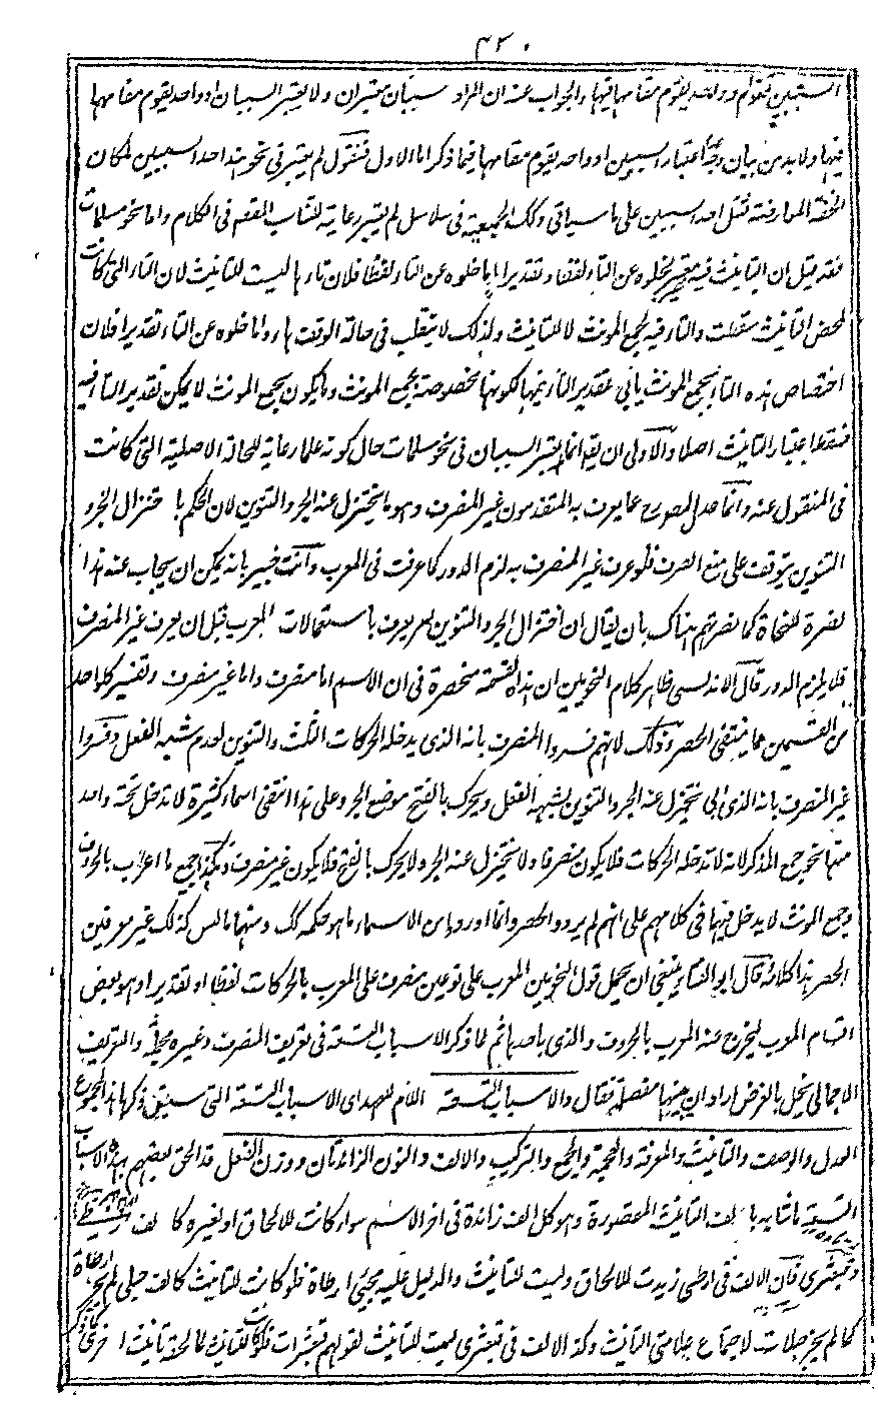 ۴۲۰
السببين بقوله وواحد يقوم مقامهما فيها والجواب عنه ان المراد سببان معتبران ولا يعتبر السببان او واحد يقوم مقامهما
فيها ولا بد من بيان وجه اعتبار السببين او واحد يقوم مقامهما فيما ذكر اما الاول فنقول لم يعتبر في نحو هند احد السببين لمكان
الخفة المعارضة لثقل احد السببين على ما سياتي وكذلك الجمعية في سلاسل لم يعتبر رعاية لتناسب المقدم في الكلام واما نحو مسلمات
فقد قيل ان التانيث فيه غير معتبر لخلوه عن التاء لفظا وتقديرا اما خلوه عن التاء لفظا فلان تاءها ليست للتانيث لان التاء التي كانت
لمحض التانيث سقطت والتاء فيه لجمع المونث لا للتانيث ولذلك لا ينقلب في حالة الوقف هاء واما خلوه عن التاء تقديرا فلان
اختصاص هذه التاء بجمع المونث يابى عن تقدير التاء فيها لكونها مخصوصة بجمع المونث وما يكون بجمع المونث لا يمكن تقدير التاء فيه
فسقط اعتبار التانيث اصلا والاولى ان يقال انما لم يعتبر السببان في نحو مسلمات حال كونه علما رعاية للحالة الاصلية التي كانت
في المنقول عنه وانما عدل المصنف رح عما يعرف به المتقدمون غير المنصرف وهو ما يختزل عنه الجر والتنوين لان الحكم با ختزال الجر و
التنوين يتوقف على منع الصرف فلو عرف غير المنصرف به لزم الدور كما عرفت في المعرب وانت خبير بانه يمكن ان يجاب عنه هذا
نصرة للنحاة كما نصرتهم هناك بان يقال ان اختزال الجر والتنوين يعرف باستعمالات العرب قبل ان يعرف غير المنصرف
فلا يلزم الدور قال الاندلسي ظاهر كلام النحويين ان هذه القسمة منحصرة في ان الاسم اما منصرف واما غير منصرف وتفسير كل واحد
من القسمين مما ينتفي الحصر وذلك لانهم فسروا المنصرف بانه الذي يدخله الحركات الثلث والتنوين لعدم شبه الفعل وفسروا
غير المنصرف بانه الذي يختزل عنه الجر والتنوين لشبه الفعل ويحرك بالفتح موضع الجر وعلى هذا انتفى اسماء كثيرة لا تدخل تحت واحد
منها نحو جمع المذكر لانه لا تدخله الحركات فلا يكون منصرفا ولا يختزل عنه الجر ولا يحرك بالفتح فلا يكون غير منصرف وكذا جميع ما اعرب بالحروف
وجمع المونث لا يدخل فيها في كلامهم على انهم لم يريدوا الحصر وانما اوردوا من الاسماء ما هو حكمه كذلك ومنها ما ليس كذلك غير معرفين
الحصر هذا كلامه قال ابو البقاء ينبغي ان يحمل قول النحويين المعرب على نوعين منصرف على المعرب بالحركات لفظا او تقديرا وهو بعض
اقسام المعرب ليخرج عنه المعرب بالحروف والذي باحدهما ثم لما ذكر الاسباب التسعة في تعريف المنصرف وغيره مجملة والتعريف
الاجمالي يخل بالغرض اراد ان يبينها مفصلة فقال والاسباب التسعة اللام للعهد اي الاسباب التسعة التي سبق ذكرها هذا المجموع
العدل والوصف والتانيث والمعرفة والعجمة والجمع والتركيب والالف والنون الزائدتان ووزن الفعل قد الحق بعضهم بهذه الاسباب
التسعة ما شابه با لف التانيث المقصورة وهو كل الف زائدة في اخر الاسم سواء كانت للالحاق او لغيره كا لف ارطى
وقبعثرى فان الالف في ارطى زيدت للالحاق وليست للتانيث والدليل عليه مجيئ ارطاة فلو كانت للتانيث كالف حبلى لم يجز ارطاة
كما لم يجز حبلات لاجتماع علامتي التانيث وكذا الالف في قبعثرى ليست للتانيث لقولهم قبعثرات فلو كانت للتانيث لما لحقه تانيث اخرى